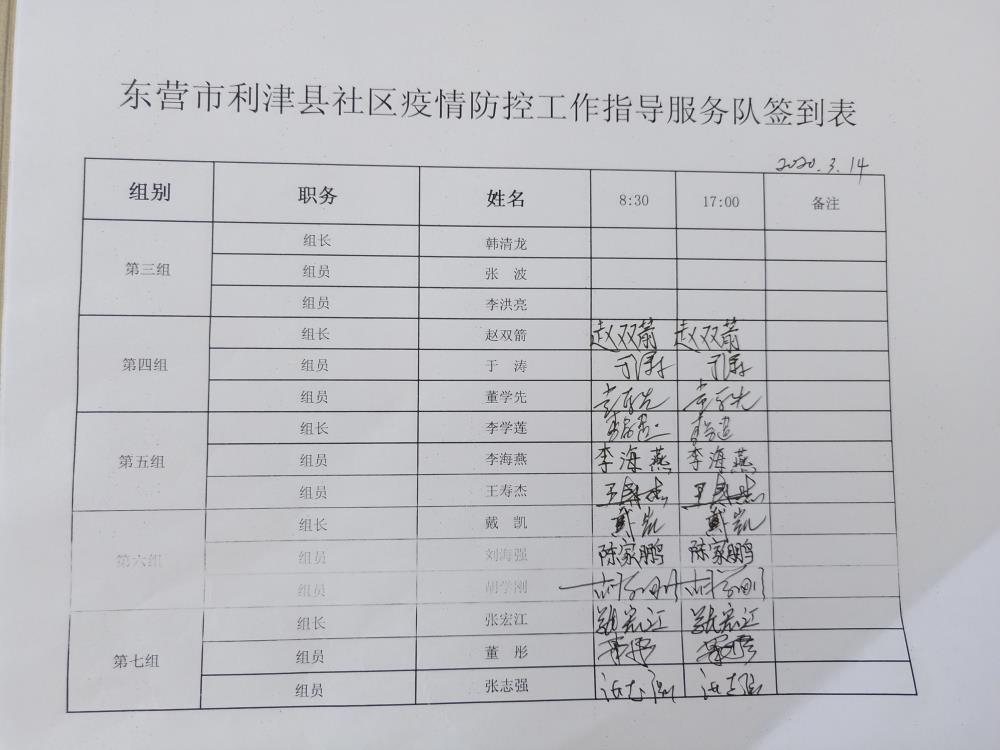 东营市利津县社区疫情防控工作指导服务队签到表
2020.3.14
组别 职务 姓名 8:30 17:00 备注
第三组 组长 韩清龙
组员 张 波
组员 李洪亮
第四组 组长 赵双箭 赵双箭 赵双箭
组员 于 涛 于涛 于涛
组员 董学先 董学先 董学先
第五组 组长 李学莲
组员 李海燕 李海燕 李海燕
组员 王寿杰 王寿杰 王寿杰
第六组 组长 戴 凯 戴凯 戴凯
组员 刘海强 陈家鹏 陈家鹏
组员 胡学刚 胡学刚 胡学刚
第七组 组长 张宏江 张宏江 张宏江
组员 董 彤 董彤 董彤
组员 张志强 张志强 张志强